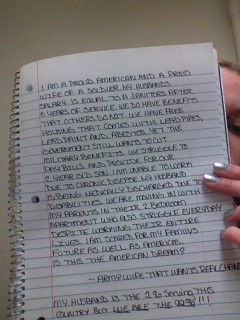 I AM A PROUD AMERICAN AND A PROUD
WIFE OF A SOLDIER. MY HUSBANDS
SALARY IS EQUAL TO A JANITORS AFTER
5 YEARS OF SERVICE. WE DO HAVE BENEFITS
THAT OTHERS DO NOT. WE HAVE FREE
HOUSING THAT COMES WITH LEAD PIPES,
LEAD PAINT AND ABESTOS. YET THE
GOVERNMENT STILL WANTS TO CUT
MILITARY BENEFITS. WE STRUGGLE TO
PAY BILLS AND PROVIDE FOR OUR
2 YEAR OLD SON. I AM UNABLE TO WORK
DUE TO CHRONIC DISEASE. MY HUSBAND
IS BEING MEDICALLY DISCHARGED DUE TO
DISABILITIES. WE ARE MOVING IN WITH
MY PARENTS IN THEIR 2 BEDROOM
APARTMENT WHO ALSO STRUGGLE EVERYDAY
DESPITE WORKING THEIR ENTIRE
LIVES. I AM SCARED FOR MY FAMILYS
FUTURE AS WELL AS AMERICAS.
IS THIS THE AMERICAN DREAM?
- ARMY WIFE THAT WANTS REAL CHANGE
MY HUSBAND IS THE 1% SERVING THIS
COUNTRY BUT WE ARE THE 99%!!!